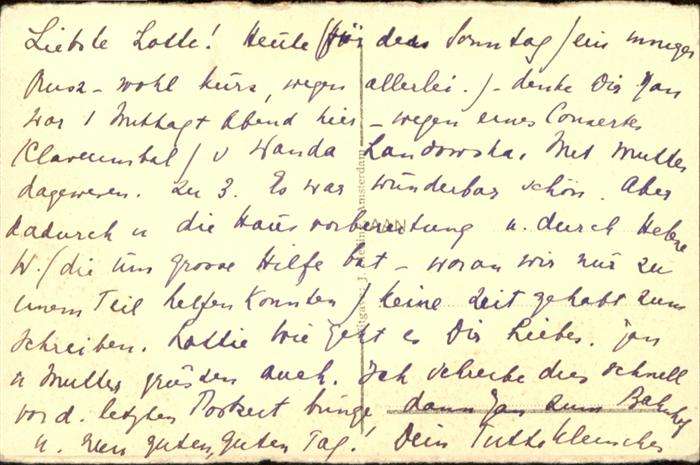 Liebste Lotte! Heute (für den Sonntag / ein
wohl kurz, wegen allerlei.) - denke Dir Jan
war 1 Mittag + Abend hier - wegen eines Concertes
v Wanda Landowska. Mit Mutter
dagewesen. zu 3. Es war wunderbar schön. Aber
dadurch u die Hausvorbereitung u. durch Helene
W. (die uns grosse Hilfe bat - woran wir nur zu
einem Teil helfen konnten) keine Zeit gehabt zum
schreiben. Lottie wie geht es Dir Liebes. Jan
u Mutter grüssen auch. Ich schreibe dies schnell
vor d. letzten bringe, dann Jan zum Bahnhof
u. nun guten, guten Tag! Dein
Amsterdam
AAN